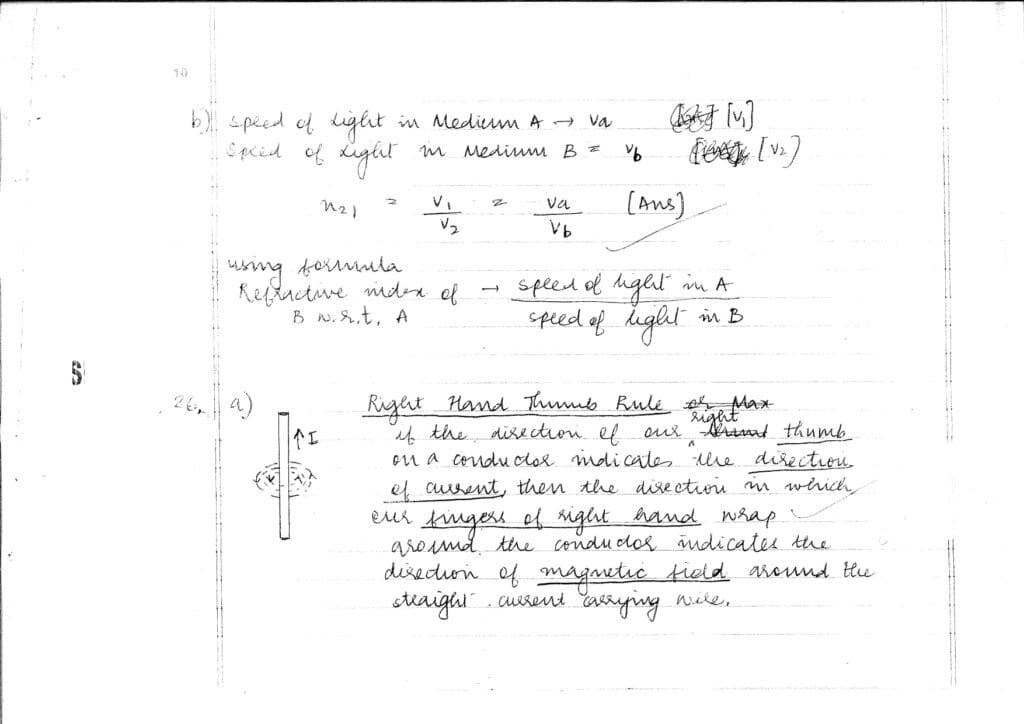 10
b) speed of light in Medium A → va [v1]
speed of light in Medium B = vb [v2]
n21 = v1/v2 = va/vb [Ans]
using formula
Refractive index of → speed of light in A
B w.r.t. A speed of light in B
S
26. a) Right Hand Thumb Rule or Max
↑I if the direction of our right thumb
on a conductor indicates the direction
of current, then the direction in which
our fingers of right hand wrap
around the conductor indicates the
direction of magnetic field around the
straight current carrying wire.